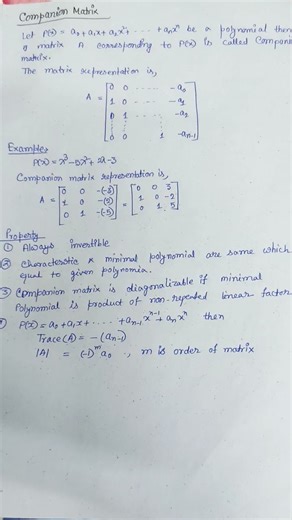 Companion Matrix
Let P(x) = a₀ + a₁x + a₂x² + ...... + aₙxⁿ be a polynomial then
a matrix A corresponding to P(x) is called Companion
matrix.
The matrix representation is,
A = [ 0 0 ...... -a₀
1 0 ...... -a₁
0 1 ...... -a₂
0 0 1 -aₙ₋₁ ]
Example,
P(x) = x³ - 5x² + 2x - 3
Companion matrix representation is,
A = [ 0 0 -(-3)
1 0 -(2)
0 1 -(-5) ] = [ 0 0 3
1 0 -2
0 1 5 ]
Property
① Always invertible
② Characteristic & minimal polynomial are same which
equal to given polynomia.
③ Companion matrix is diagonalizable if minimal
Polynomial is product of non-repeated linear factor
P(x) = a₀ + a₁x + ...... + aₙ₋₁xⁿ⁻¹ + aₙxⁿ then
Trace(A) = -(aₙ₋₁)
|A| = (-1)ᵐ a₀ , m is order of matrix